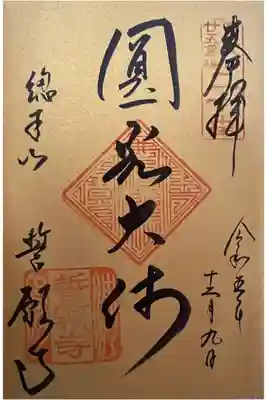 奉拝
令和五年
十二月九日
圓光大師
總本山
誓願寺
誓願寺